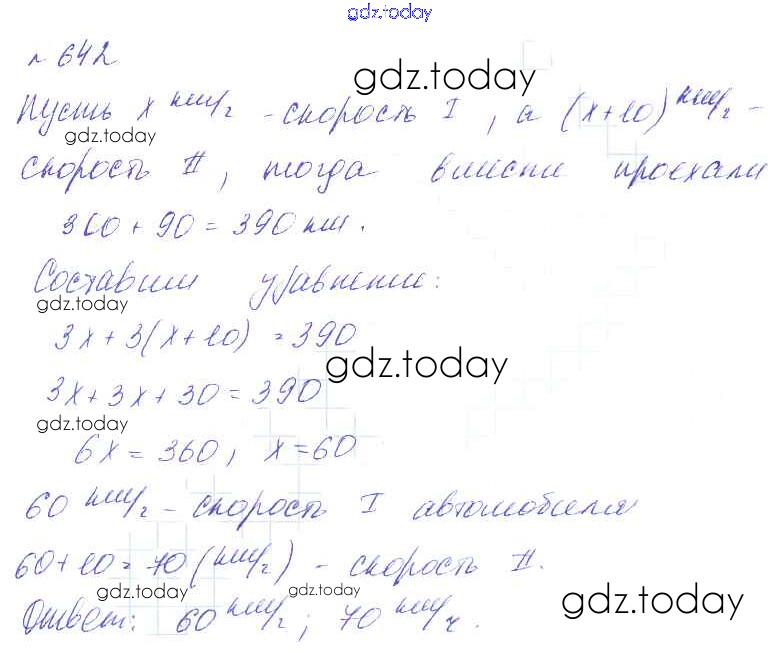 gdz.today
№ 642
gdz.today
Пусть x км/ч - скорость I, а (x+10) км/ч -
gdz.today
скорость II, тогда вместе проехали
300 + 90 = 390 км.
Составим уравнение:
gdz.today
3x + 3(x+10) = 390
gdz.today
3x + 3x + 30 = 390
gdz.today
6x = 360, x = 60
60 км/ч - скорость I автомобиля
60 + 10 = 70 (км/ч) - скорость II.
gdz.today gdz.today gdz.today
Ответ: 60 км/ч; 70 км/ч.